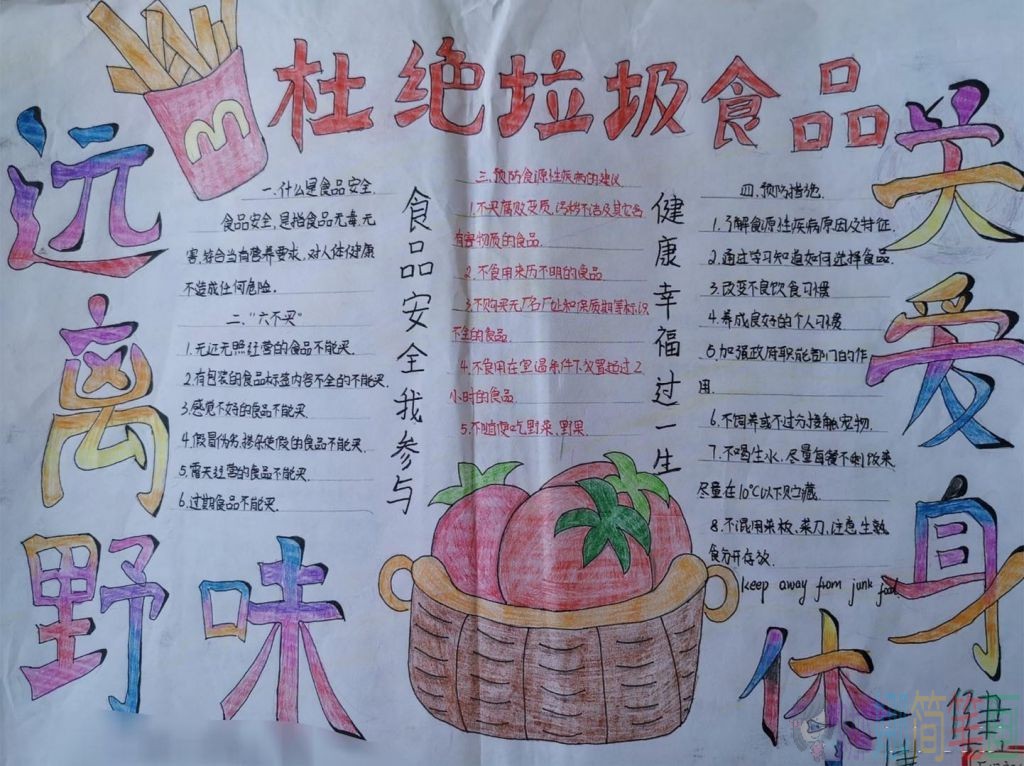 杜绝垃圾食品
远离野味
关爱身体
一.什么是食品安全
食品安全,是指食品无毒.无
害,符合当有营养要求,对人体健康
不造成任何危险.
二."六不买"
1.无证无照经营的食品不能买.
2.有包装的食品标签内容不全的不能买.
3.感觉不好的食品不能买.
4.假冒伪劣.掺杂使假的食品不能买.
5.露天经营的食品不能买.
6.过期食品不能买.
食品安全我参与
三.预防食源性疾病的建议
1.不买腐败变质.污秽不洁及其它含
有害物质的食品.
2.不食用来历不明的食品
3.不购买无厂名厂址和保质期等标识
不全的食品.
4.不食用在室温条件下放置超过2
小时的食品
5.不随便吃野菜.野果.
健康幸福过一生
四.预防措施.
1.了解食源性疾病原因及特征.
2.通过学习知道如何选择食品.
3.改变不良饮食习惯
4.养成良好的个人习惯
5.加强政府职能部门的作
用.
6.不饲养或不过分接触宠物.
7.不喝生水.尽量每餐不剩饭菜
尽量在10℃以下贮藏
8.不混用菜板.菜刀,注意生熟
食分开存放.
keep away from junk food
简笔画